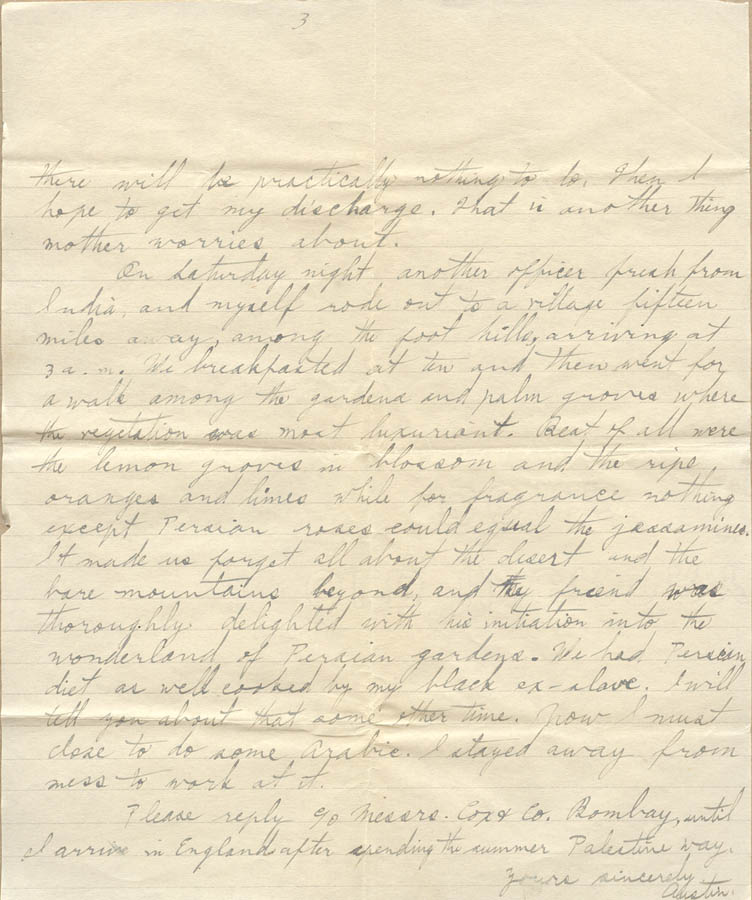 3
there will be practically nothing to do. Then I
hope to get my discharge. That is another thing
mother worries about.
On Saturday night another officer fresh from
India, and myself rode out to a village fifteen
miles away, among the foot hills, arriving at
3 a.m. We breakfasted at ten and then went for
a walk among the gardens and palm groves where
the vegetation was most luxuriant. Best of all were
the lemon groves in blossom and the ripe
oranges and limes while for fragrance nothing
except Persian roses could equal the jessamines.
It made us forget all about the desert and the
bare mountains beyond, and my friend was
thoroughly delighted with his initiation into the
wonderland of Persian gardens. We had Persian
diet as well cooked by my black ex-slave. I will
tell you about that some other time. Now I must
close to do some Arabic. I stayed away from
mess to work at it.
Please reply c/o Messrs. Cox & Co. Bombay, until
I arrive in England after spending the summer Palestine way.
Yours sincerely
Austin.